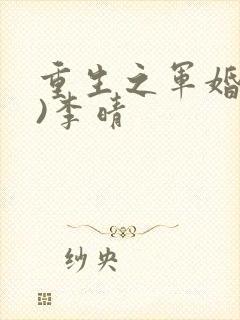 重生之军婚
)李晴
纱央